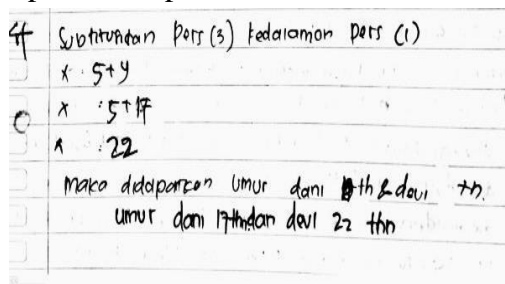 Subtitusikan Pers (3) kedalaman pers (1)
x : 5+y
x : 5+17
x : 22
maka didapatkan umur dani th & devi th.
umur dani 17thn dan devi 22 thn